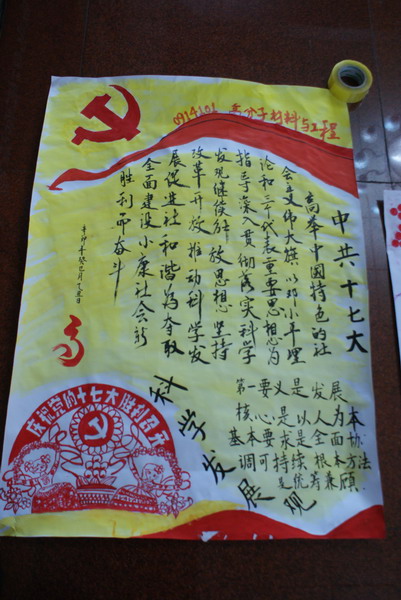 0914101 高分子材料与工程
中共十七大
高举中国特色的社
会主义伟大旗以邓小平理
论和三个代表重要思想为
指导深入贯彻落实科学
发观继续解放思想坚持
改革开放推动科学发
展促进社和谐为夺取
全面建设小康社会新
胜利而奋斗
科学发展观
第一要义是发展
核心是以人为本
基本要求是全面协
调可持续根本方法
是统筹兼顾
庆祝党的十七大胜利召开